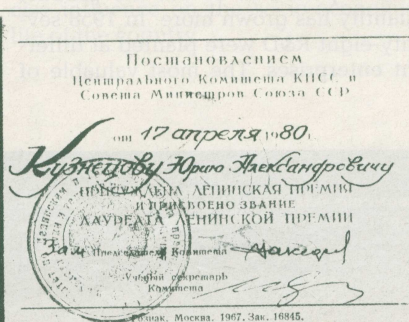 Постановлением
Центрального Комитета КПСС и
Совета Министров Союза ССР
от 17 апреля 1980г.
Кузнецову Юрию Александровичу
ПРИСУЖДЕНА ЛЕНИНСКАЯ ПРЕМИЯ
И ПРИСВОЕНО ЗВАНИЕ
ЛАУРЕАТА ЛЕНИНСКОЙ ПРЕМИИ
Зам Председателя Комитета
Ученый секретарь
Комитета
Гознак. Москва. 1967. Зак. 16845.